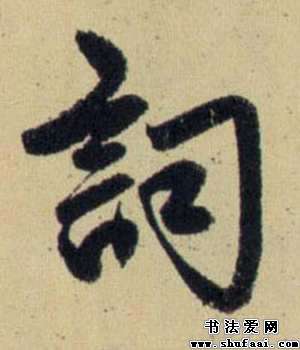 詞
书法爱网
www.shufaai.com